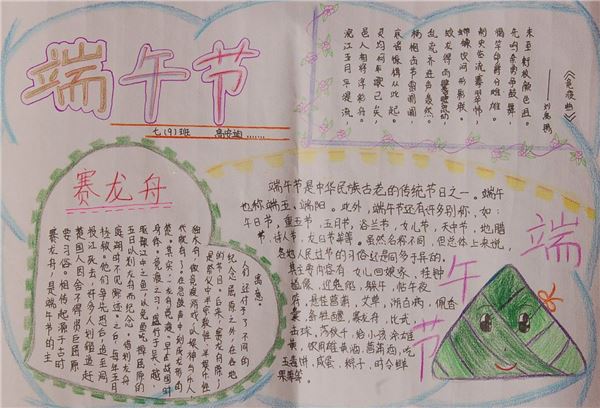 端午节
七(9)班
《竞渡曲》
——刘禹锡
沅江五月平堤流，
邑人相将浮彩舟。
灵均何年歌已矣，
哀谣振楫从此起。
杨桴击节雷阗阗，
乱流齐进声轰然。
蛟龙得雨鬐鬣动，
螮蝀饮河形影联。
刺史临流褰翠帏，
揭竿命爵分雄雌。
先鸣余勇争鼓舞，
未至衔枚颜色沮。
赛龙舟
赛龙舟，是端午节的主
要习俗。相传起源于古时
楚国人因舍不得贤臣屈原
投江死去，许多人划船追赶
拯救。他们争先恐后，追至洞
庭湖时不见踪迹。之后，每年五月
五日以划龙舟而纪念。借划龙舟
驱散江中之鱼，以免鱼吃掉屈原的
身体。竞渡之习，盛行于吴、越、
楚。其实，龙舟竞渡早在战国时
代就有了。在急鼓声中划刻成龙形的
独木舟，做竞渡游戏，以娱神与乐人，
是祭仪中半宗教性、半娱乐性
的节目。后来，赛龙舟除
纪念屈原之外，在各地
人们还付予了不同的
寓意。
端午节是中华民族古老的传统节日之一。端午
也称端五、端阳。此外，端午节还有许多别称，如：
午日节，重五节，五月节，浴兰节，女儿节，天中节，地腊
节，诗人节，龙日节等等。虽然名称不同，但总体上来说，
各地人民过节的习俗还是同多于异的。
其主要内容有女儿回娘家，挂钟
馗像，迎鬼船，躲午，帖午夜
符，悬挂菖蒲，艾草，游百病，佩香
囊，备牲醴，赛龙舟，比武，
击球，荡秋千，给小孩涂雄
黄，饮用雄黄酒，菖蒲酒，吃
五毒饼，咸蛋，粽子，时令鲜
果等等。
端午节